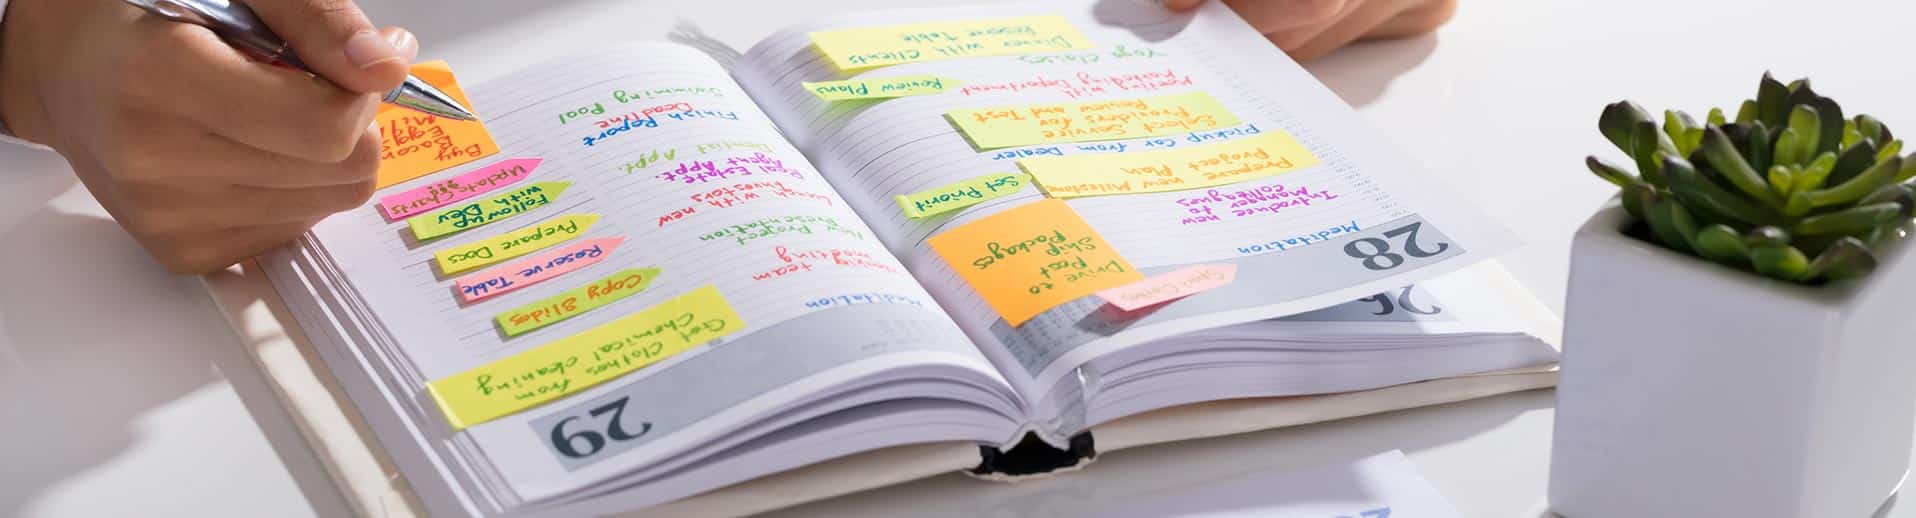 26
28
Meditation
Introduce new
Manager to
colleagues
Prepare new Milestone
Project Plan
Pickup Car from Dealer
Select Service
Providers for Test
Review and Test
Meeting with
Marketing Department
Yoga Classes
Dinner with Clients
Reserve Table
Drive to
Post
Ship
Packages
Set Priorit
Review Plans
29
Meditation
team
meeting
New Project
Presentation
Lunch with new
Investors
Real Estate
Agent Appt.
Dentist Appt.
Finish Report
Deadline
Swimming Pool
Get Clothes from
Chemical cleaning
Copy Slides
Reserve Table
Prepare Docs
Follow up
with Dev
Update Charts
Buy
Bacon
Eggs